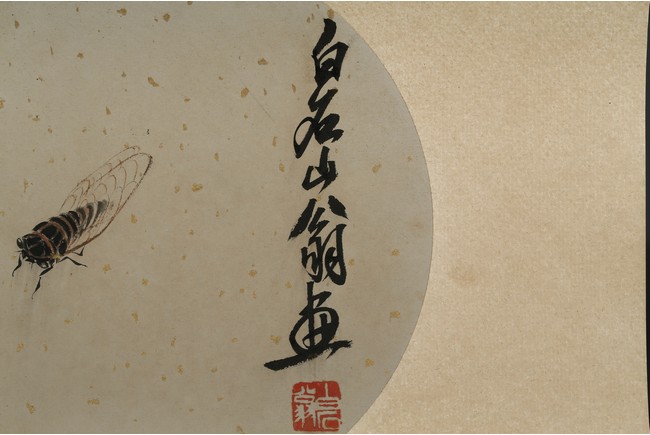 白石山翁画